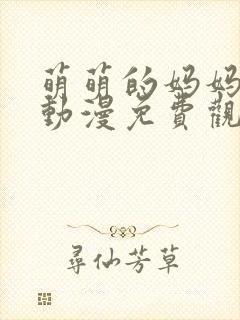 萌萌的妈妈
動漫免費觀
尋仙芳草